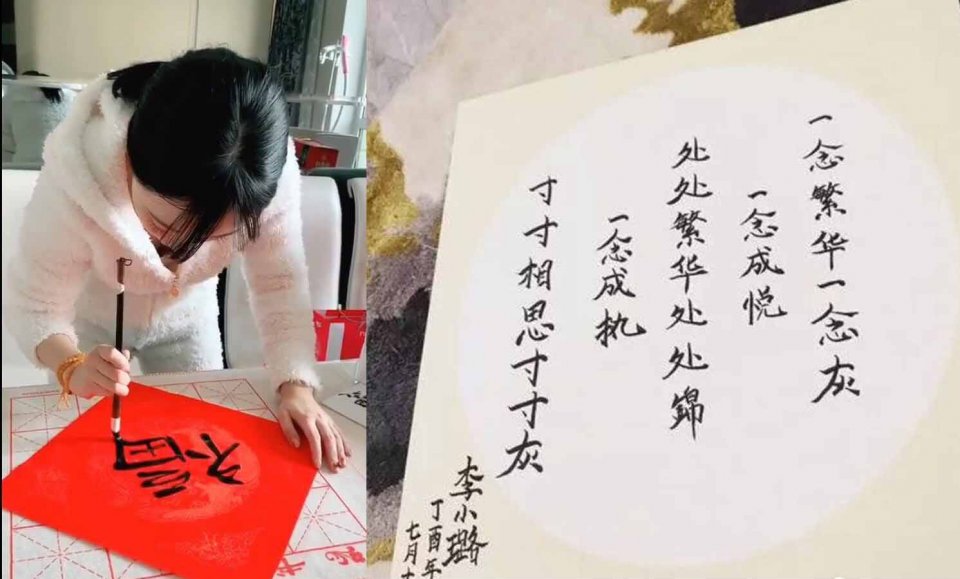 福
一念繁华一念灰
一念成悦
处处繁华处处錦
一念成执
寸寸相思寸寸灰
李小璐
丁酉年
七月